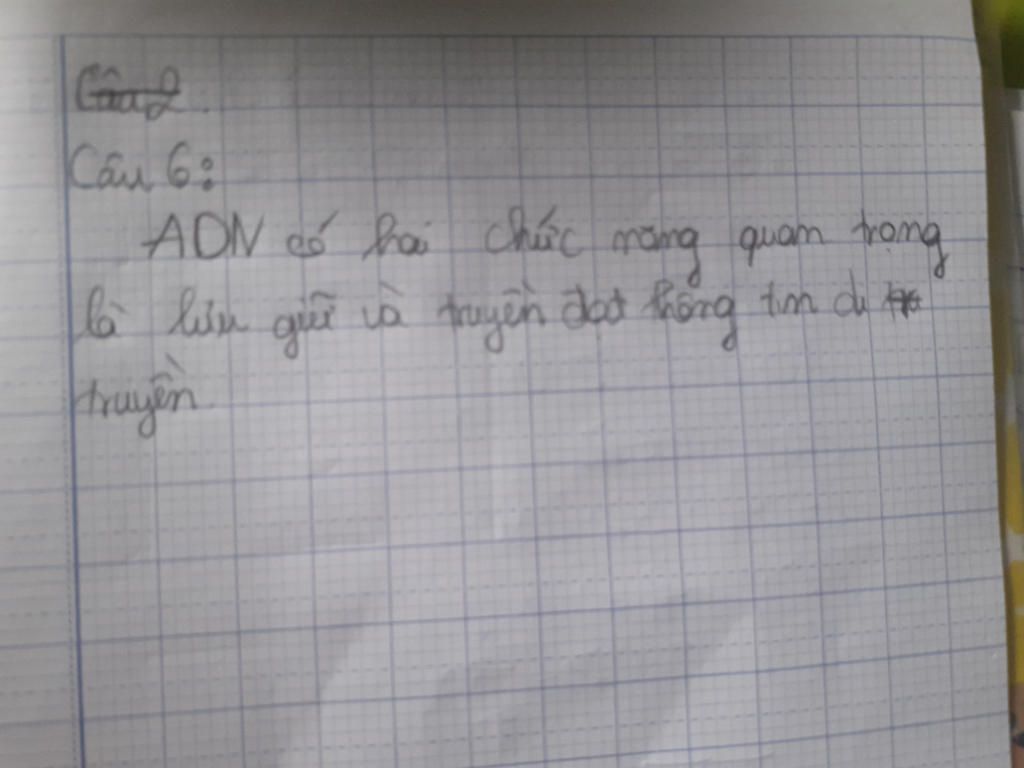 Câu 2.
Câu 6:
ADN có hai chức năng quan trọng
là lưu giữ và truyền đạt thông tin di
truyền